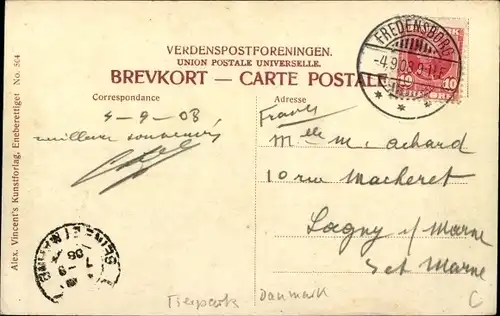 VERDENSPOSTFORENINGEN.
UNION POSTALE UNIVERSELLE.
BREVKORT — CARTE POSTALE
Correspondance
Adresse
FREDENSBORG
-4.9.08.9-11F
10 10
4-9-08
meilleurs souvenirs
France
Melle M. Achard
10 rue Macheret
Lagny s/ Marne
Set Marne
SEINE-ET-MARNE
7-9
08
Danmark
C
Alex. Vincent's Kunstforlag, Eneberettiget No. 504